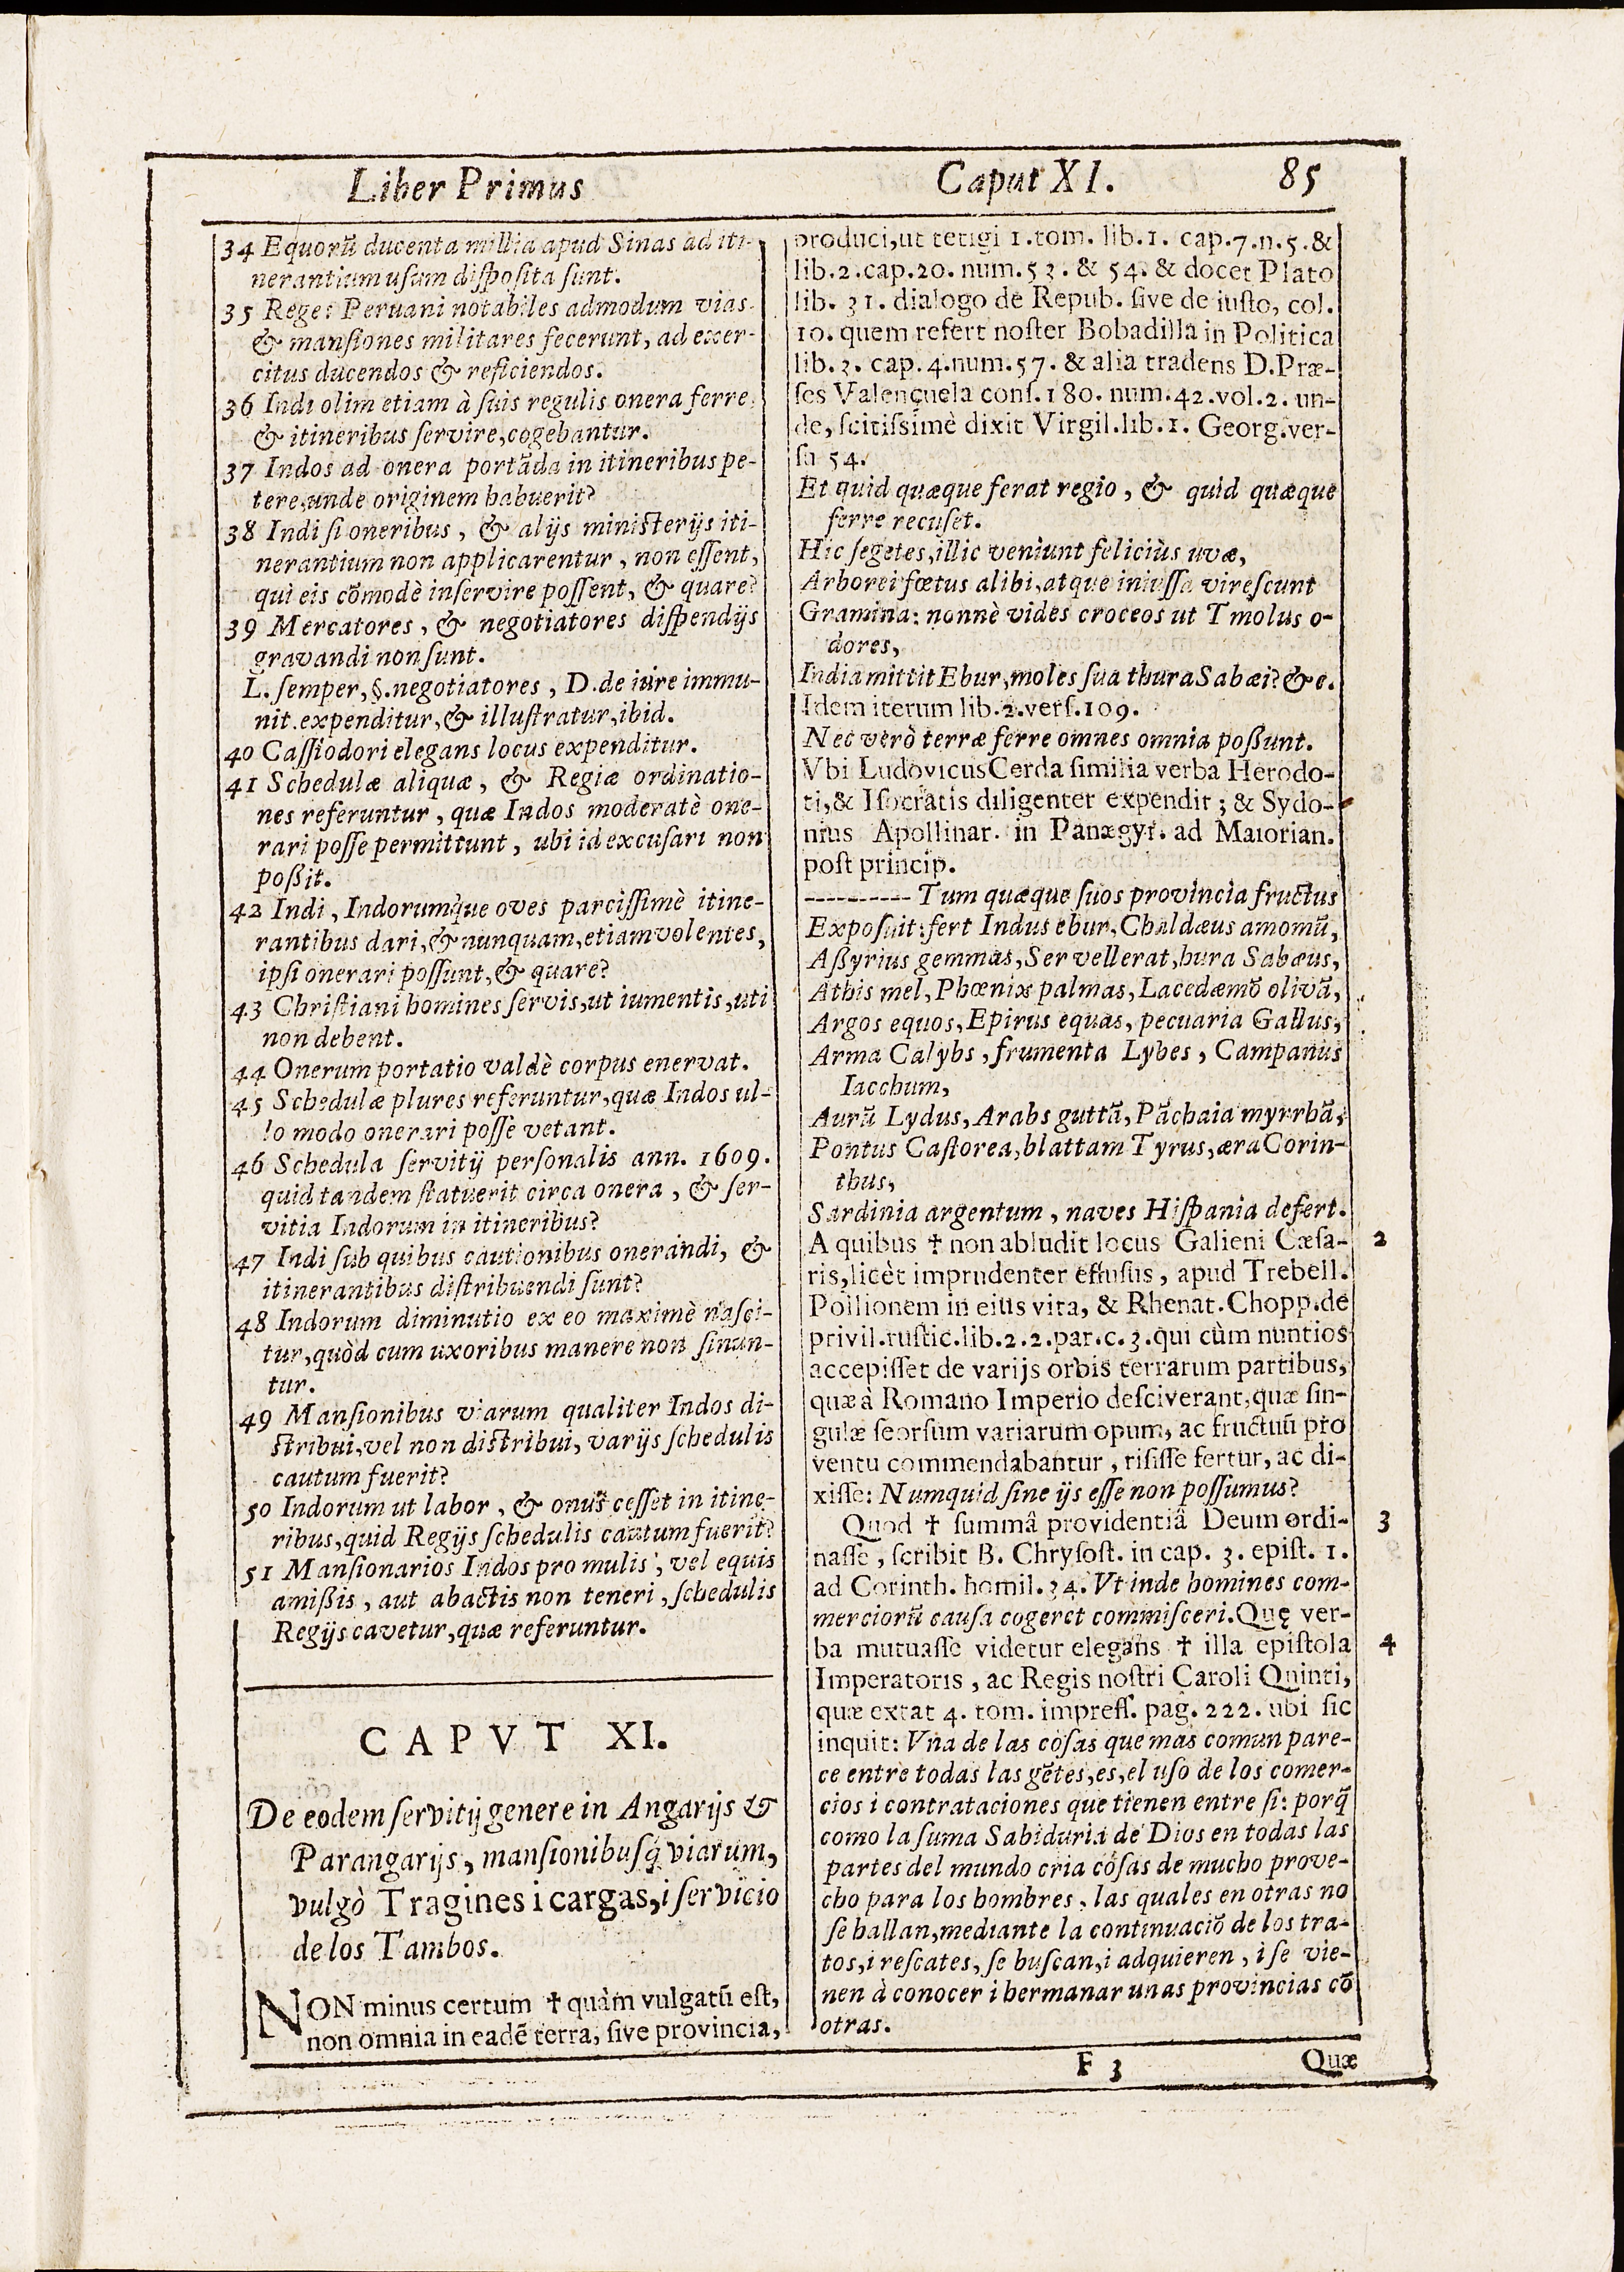 Liber Primus
Caput XI.
85
34 Equorũ ducenta millia apud Sinas ad iti-
nerantium usum diſpoſita ſunt.
35 Reges Peruani notabiles admodum vias
& manſiones militares fecerunt, ad exer-
citus ducendos & reficiendos.
36 Indi olim etiam à ſuis regulis onera ferre,
& itineribus ſervire, cogebantur.
37 Indos ad onera portãda in itineribus pe-
tere, unde originem habuerit?
38 Indi ſi oneribus, & alijs miniſterijs iti-
nerantium non applicarentur, non eſſent,
qui eis cõmodè inſervire poſſent, & quare?
39 Mercatores, & negotiatores diſpendijs
gravandi non ſunt.
L. ſemper, §. negotiatores, D. de iure immu-
nit. expenditur, & illuſtratur, ibid.
40 Caſſiodori elegans locus expenditur.
41 Schedulæ aliquæ, & Regiæ ordinatio-
nes referuntur, quæ Indos moderatè one-
rari poſſe permittunt, ubi id excuſari non
poßit.
42 Indi, Indorumq̀ue oves parciſſimè itine-
rantibus dari, & nunquam, etiam volentes,
ipſi onerari poſſunt, & quare?
43 Chriſtiani homines ſervis, ut iumentis, uti
non debent.
44 Onerum portatio valdè corpus enervat.
45 Schedulæ plures referuntur, quæ Indos ul-
lo modo onerari poſſe vetant.
46 Schedula ſervitij perſonalis ann. 1609.
quid tandem ſtatuerit circa onera, & ſer-
vitia Indorum in itineribus?
47 Indi ſub quibus cautionibus onerandi, &
itinerantibus diſtribuendi ſunt?
48 Indorum diminutio ex eo maximè naſci-
tur, quòd cum uxoribus manere non ſinun-
tur.
49 Manſionibus viarum qualiter Indos di-
ſtribui, vel non diſtribui, varijs ſchedulis
cautum fuerit?
50 Indorum ut labor, & onus ceſſet in itine-
ribus, quid Regijs ſchedulis cautum fuerit?
51 Manſionarios Indos pro mulis, vel equis
amißis, aut abactis non teneri, ſchedulis
Regijs cavetur, quæ referuntur.
CAPVT XI.
De eodem ſervitij genere in Angarijs &
Parangarijs, manſionibuſq̃ viarum,
vulgò Tragines i cargas, i ſervicio
de los Tambos.
NON minus certum † quàm vulgatũ eſt,
non omnia in eadẽ terra, ſive provincia,
produci, ut tetigi 1. tom. lib. 1. cap. 7. n. 5. &
lib. 2. cap. 20. num. 53. & 54. & docet Plato
lib. 31. dialogo de Repub. ſive de iuſto, col.
10. quem refert noſter Bobadilla in Politica
lib. 3. cap. 4. num. 57. & alia tradens D. Præ-
ſes Valençuela conſ. 180. num. 42. vol. 2. un-
de, ſcitiſsimè dixit Virgil. lib. 1. Georg. ver-
ſu 54.
Et quid quæque ferat regio, & quid quæque
ferre recuſet.
Hic ſegetes, illic veniunt feliciùs uvæ,
Arborei fœtus alibi, atque iniuſſa vireſcunt
Gramina: nonnè vides croceos ut Tmolus o-
dores,
India mittit Ebur, moles ſua thura Sabæi? & c.
Idem iterum lib. 2. verſ. 109.
Nec verò terræ ferre omnes omnia poßunt.
Vbi Ludovicus Cerda ſimilia verba Herodo-
ti, & Iſocratis diligenter expendit; & Sydo-
nius Apollinar. in Panægyr. ad Maiorian.
poſt princip.
---------- Tum quæque ſuos provincia fructus
Expoſuit: fert Indus ebur, Chaldæus amomũ,
Aßyrius gemmas, Ser vellerat, hura Sabæus,
Athis mel, Phœnix palmas, Lacedæmõ olivã,
Argos equos, Epirus equas, pecuaria Gallus,
Arma Calybs, frumenta Lybes, Campanus
Iacchum,
Aurũ Lydus, Arabs guttã, Pãchaia myrrhã,
Pontus Caſtorea, blattam Tyrus, æra Corin-
thus,
Sardinia argentum, naves Hiſpania defert.
A quibus † non abludit locus Galieni Cæſa- 2
ris, licèt imprudenter effuſus, apud Trebell.
Pollionem in eius vita, & Rhenat. Chopp. de
privil. ruſtic. lib. 2. 2. par. c. 3. qui cùm nuntios
accepiſſet de varijs orbis terrarum partibus,
quæ à Romano Imperio deſciverant, quæ ſin-
gulæ ſeorſum variarum opum, ac fructuũ pro
ventu commendabantur, riſiſſe fertur, ac di-
xiſſe: Numquid ſine ijs eſſe non poſſumus?
Quod † ſummâ providentiâ Deum ordi- 3
naſſe, ſcribit B. Chryſoſt. in cap. 3. epiſt. 1.
ad Corinth. homil. 34. Vt inde homines com-
merciorũ cauſa cogeret commiſceri. Quę ver-
ba mutuaſſe videtur elegans † illa epiſtola 4
Imperatoris, ac Regis noſtri Caroli Quinti,
quæ extat 4. tom. impreſſ. pag. 222. ubi ſic
inquit: Vna de las coſas que mas comun pare-
ce entre todas las gẽtes, es, el uſo de los comer-
cios i contrataciones que tienen entre ſi: porq̃
como la ſuma Sabiduria de Dios en todas las
partes del mundo cria coſas de mucho prove-
cho para los hombres, las quales en otras no
ſe hallan, mediante la continuaciõ de los tra-
tos, i reſcates, ſe buſcan, i adquieren, i ſe vie-
nen à conocer i hermanar unas provincias cõ
otras.
F 3
Quæ